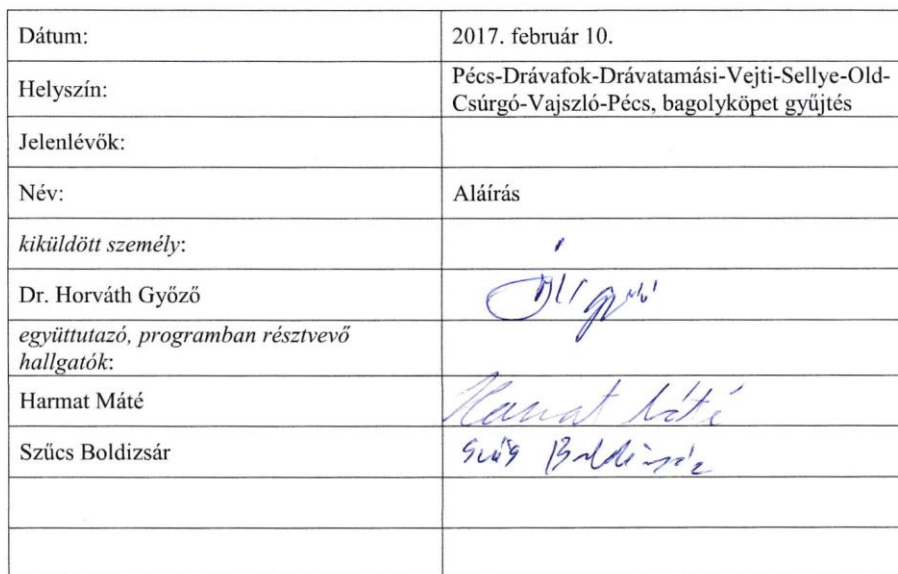 Dátum: 2017. február 10.
Helyszín: Pécs-Drávafok-Drávatamási-Vejti-Sellye-Old-
Csúrgó-Vajszló-Pécs, bagolyköpet gyűjtés
Jelenlévők:
Név: Aláírás
kiküldött személy:
Dr. Horváth Győző
együttutazó, programban résztvevő
hallgatók:
Harmat Máté Harmat Máté
Szűcs Boldizsár Szűcs Boldizsár